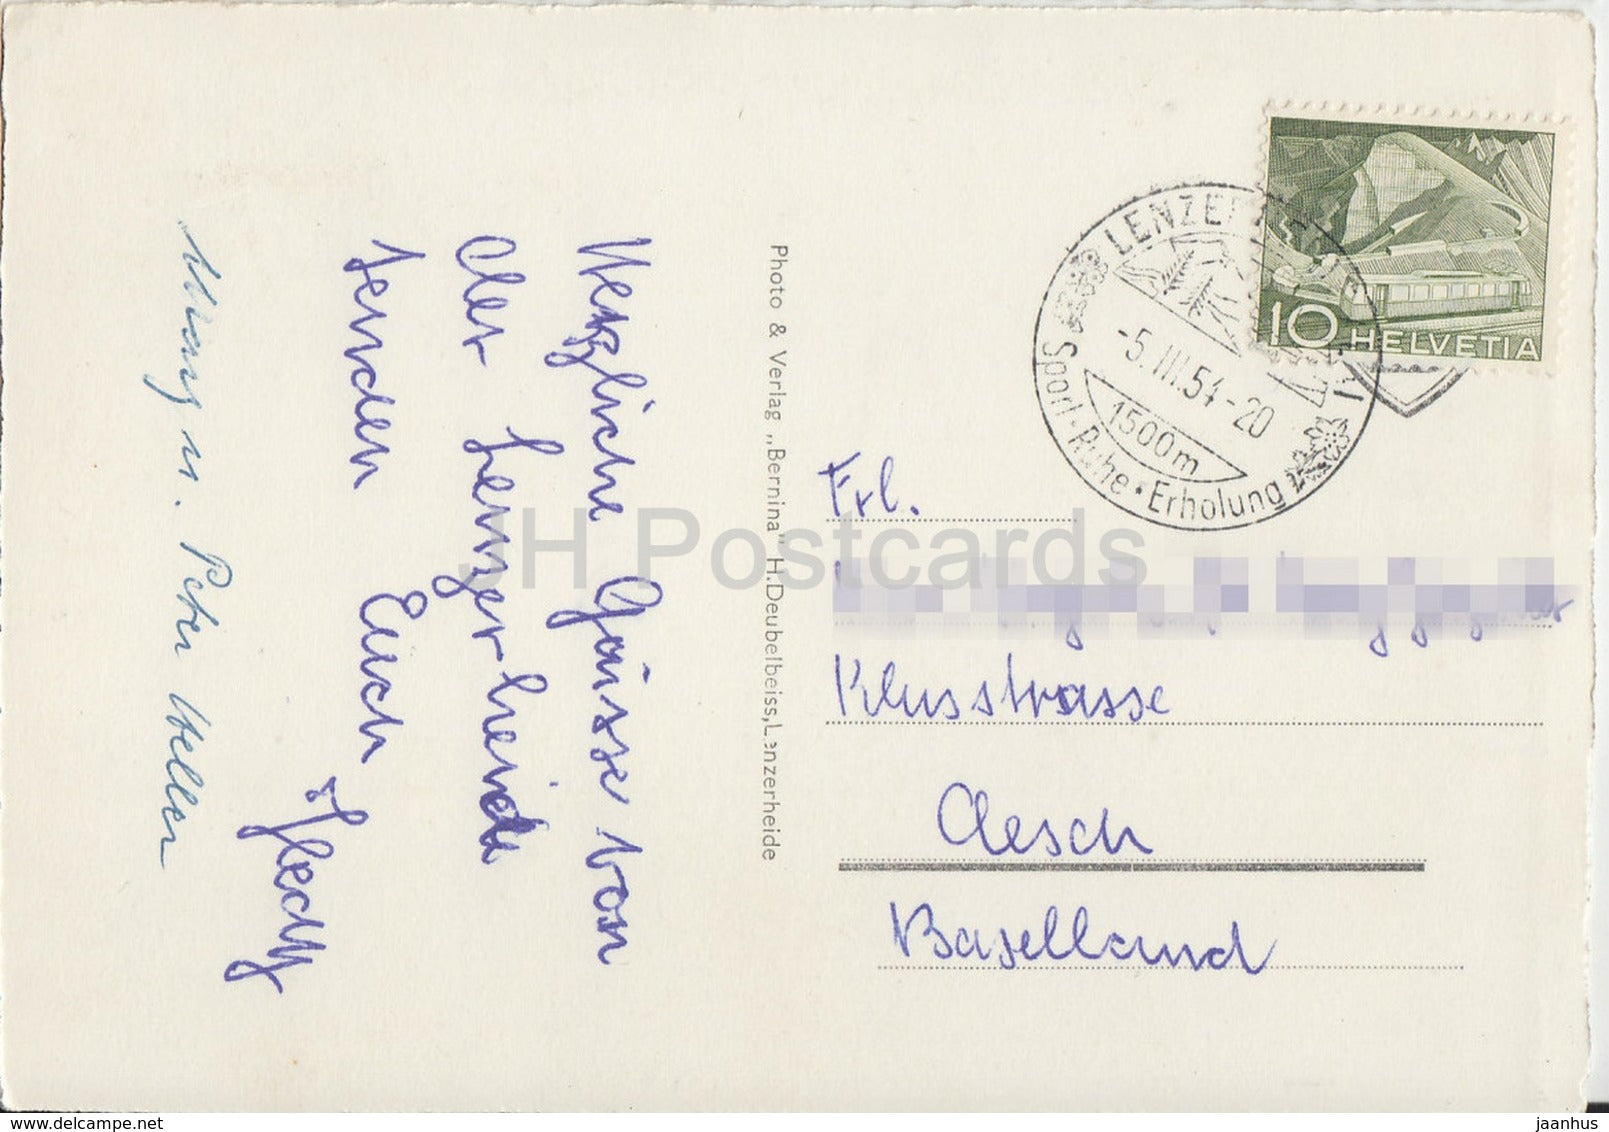 Herzliche Grüsse von
der Lenzerheide
senden Euch
Hedy
u. Peter Weller
Photo & Verlag „Bernina" H.Deubelbeiss, Lenzerheide
LENZERHEIDE
-5.III.54-20
1500m
Sport·Ruhe·Erholung
10 HELVETIA
Frl.
Klusstrasse
Aesch
Baselland
JH Postcards
www.delcampe.net
jaanhus